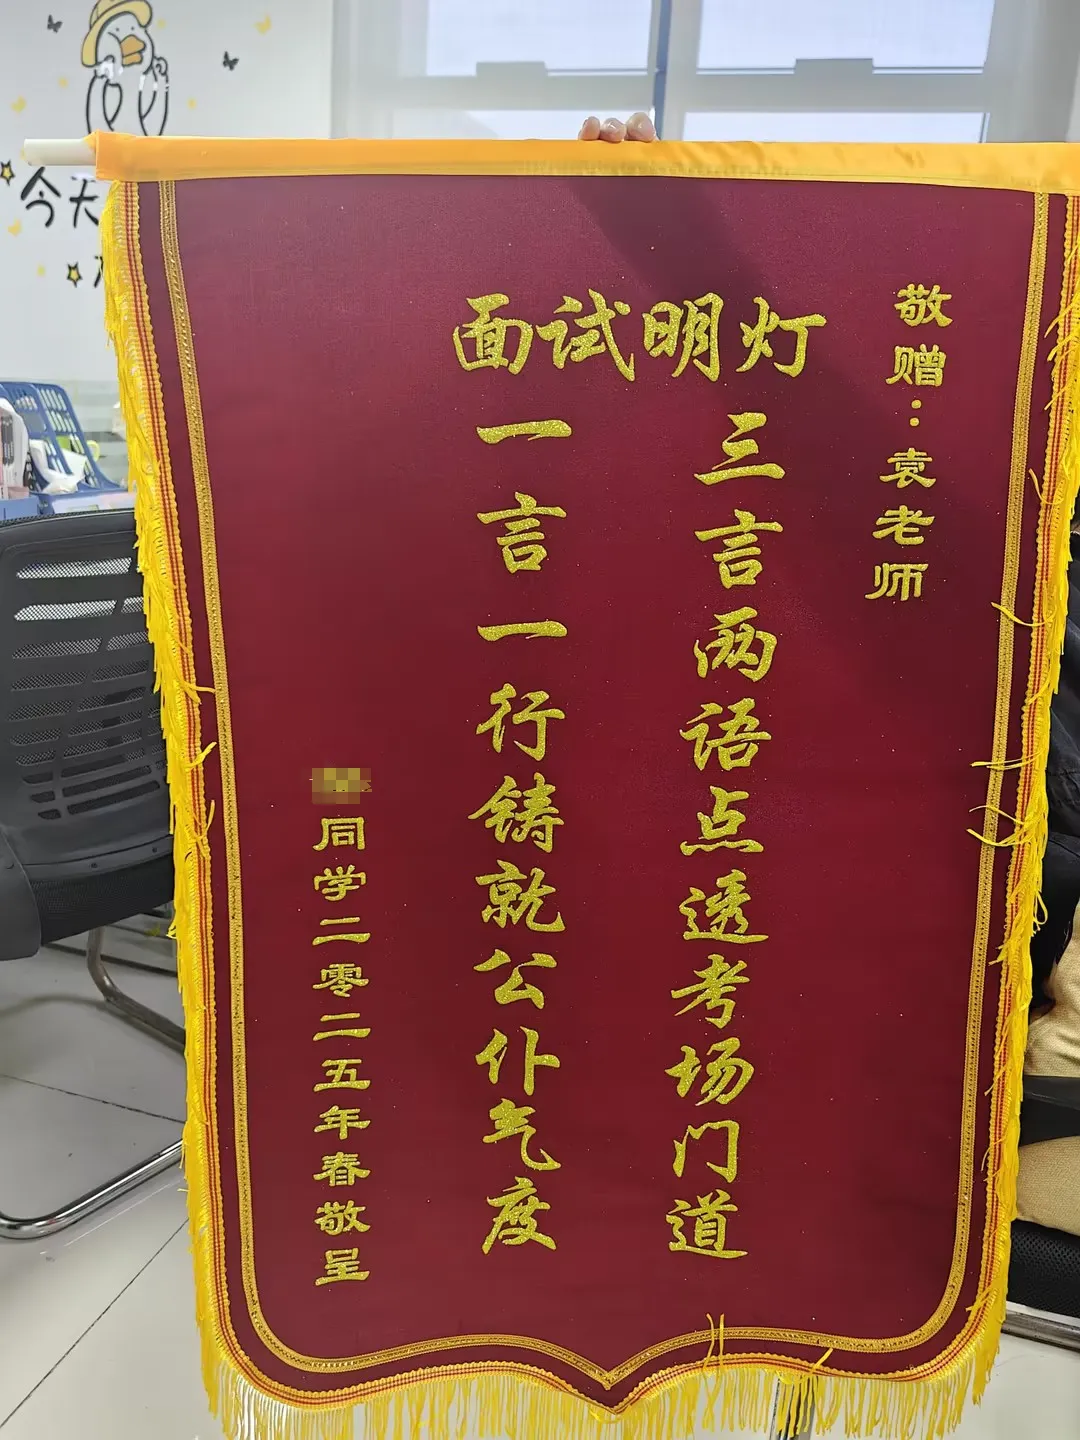 敬赠：袁老师
面试明灯
三言两语点透考场门道
一言一行铸就公仆气度
同学二零二五年春敬呈
今天